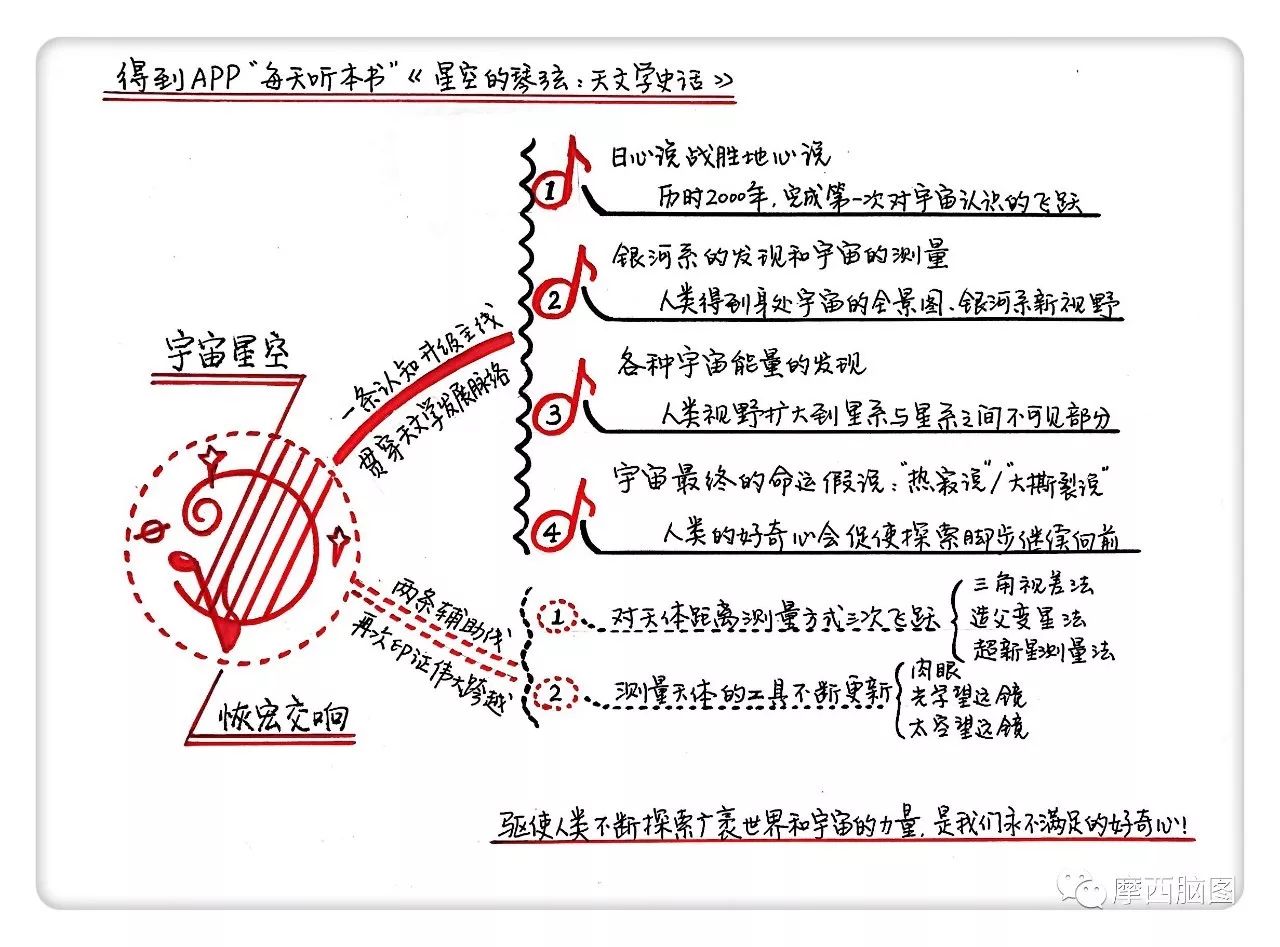 得到APP“每天听本书”《星空的琴弦:天文学史话》
宇宙星空
恢宏交响
一条认知升级主线
贯穿天文学发展脉络
1
日心说战胜地心说
历时2000年,完成第一次对宇宙认识的飞跃
2
银河系的发现和宇宙的测量
人类得到身处宇宙的全景图、银河系新视野
3
各种宇宙能量的发现
人类视野扩大到星系与星系之间不可见部分
4
宇宙最终的命运假说:“热寂说”/“大撕裂说”
人类的好奇心会促使探索脚步继续向前
两条辅助线
再次印证伟大跨越
1
对天体距离测量方式三次飞跃
三角视差法
造父变星法
超新星测量法
2
测量天体的工具不断更新
肉眼
光学望远镜
太空望远镜
驱使人类不断探索广袤世界和宇宙的力量,是我们永不满足的好奇心!
摩西脑图